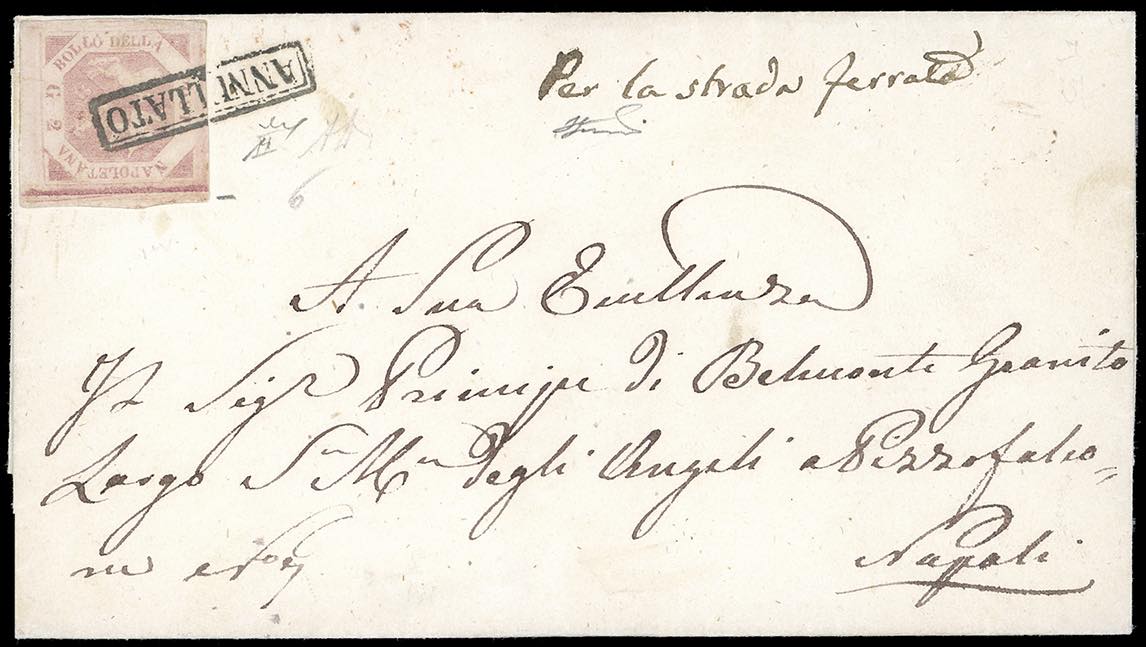 BOLLO DELLA
G 2
NAPOLETANA
ANNULLATO
Per la strada ferrata
6
A Sua Eccellenza
Il Sigr Principe di Belmonte Granito
Largo Sa Ma degli Angeli a Pizzofalco=
ne
Napoli